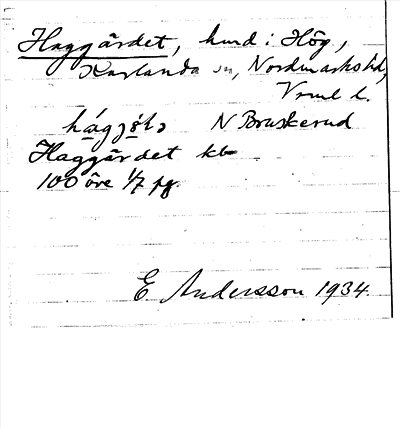 Haggärdet, hmd i Hög,
Karlanda sn, Nordmarks hd,
Vrml l.
N Bruskerud
Haggärdet kb
100 öre 1/7 pg.
E. Andersson 1934.